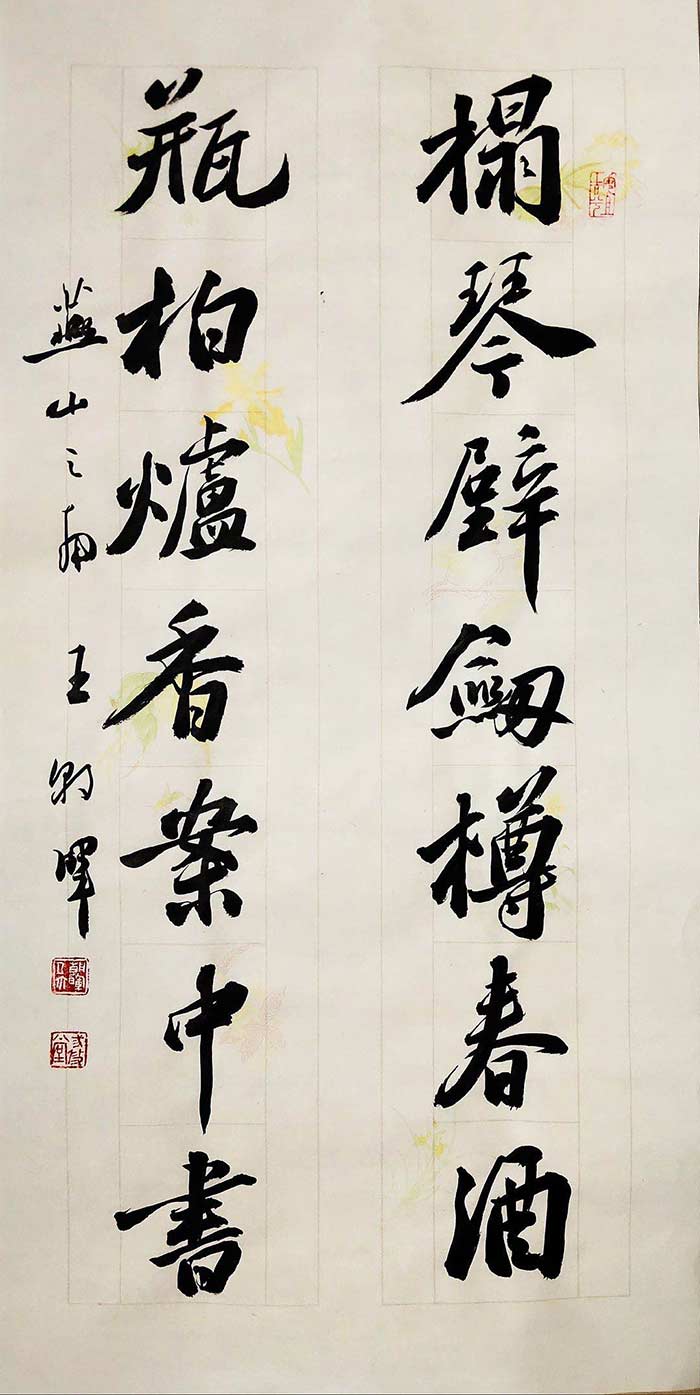 榻琴壁劍樽春酒
瓶柏爐香案中書
燕山之南 王朝暉